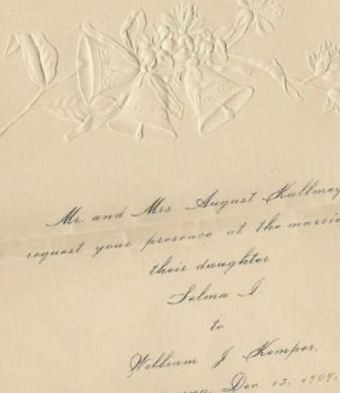 Mr. and Mrs August Kullmey
request your presence at the marria
their daughter
Selma I.
to
William J Kemper.
Dec 13, 1909.